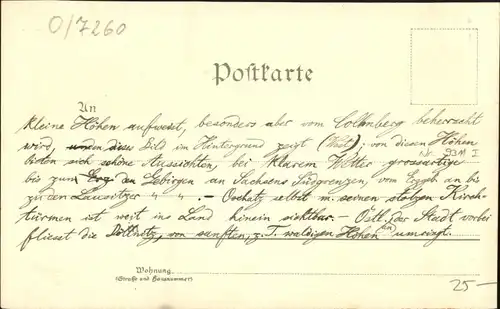 O/7260
Postkarte
An
kleine Höhen aufweist, besonders aber vom Collmberg beherrscht
wird, dieses Bild im Hintergrund zeigt (West); von diesen Höhen
bieten sich schöne Aussichten, bei klarem Wetter grossartige
Nr. 5311 I
bis zum Erz den Gebirgen an Sachsens Südgrenzen, vom Erzgeb. an bis
zu den Lausitzer " ". — Oschatz selbst m. seinen stolzen Kirch-
türmen ist weit in Land hinein sichtbar. — Östl. der Stadt vorbei
fliesst die Döllnitz, von sanften, z. T. waldigen Höhen umringt.
Wohnung
(Straße und Hausnummer)
25 —